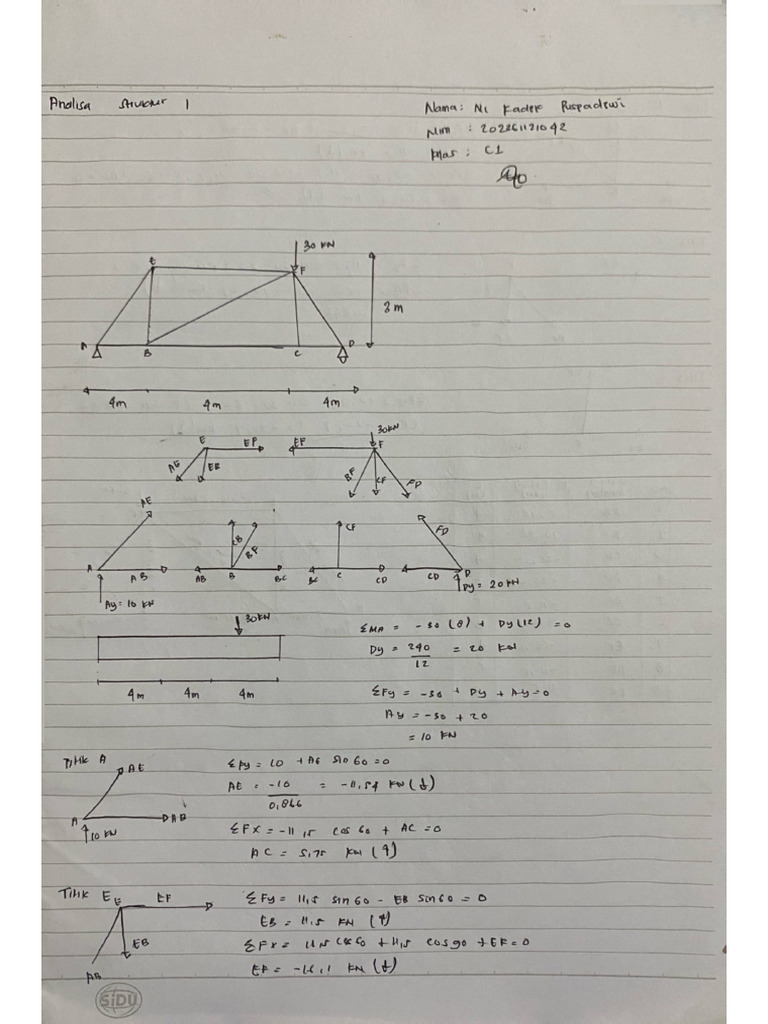 Analisa Struktur 1
Nama: Ni Kadek Puspadewi
Nim : 202261121042
Klas : C1
30 KN
E
F
3 m
A
B
C
D
4m
4m
4m
30KN
E
EF
EF
F
AE
EB
BF
CF
FD
AE
EB
BF
CF
FD
A
AB
AB
B
BC
BC
C
CD
CD
D
Dy = 20 KN
Ay = 10 KN
30KN
ΣMA = -30 (8) + Dy (12) = 0
Dy = 240 = 20 KN
12
4m
4m
4m
ΣFy = -30 + Dy + Ay = 0
Ay = -30 + 20
= 10 KN
Titik A
AE
ΣFy = 10 + AE Sin 60 = 0
AE = -10 = -11,54 KN
0,866
A
AB
10 KN
ΣFX = -11,5 cos 60 + AC = 0
AC = 5,75 KN
Titik E
E
EF
ΣFy = 11,5 sin 60 - EB sin 60 = 0
EB = 11,5 KN
EB
ΣFx = 11,5 cos 60 + 11,5 cos 90 + EF = 0
AB
SiDU